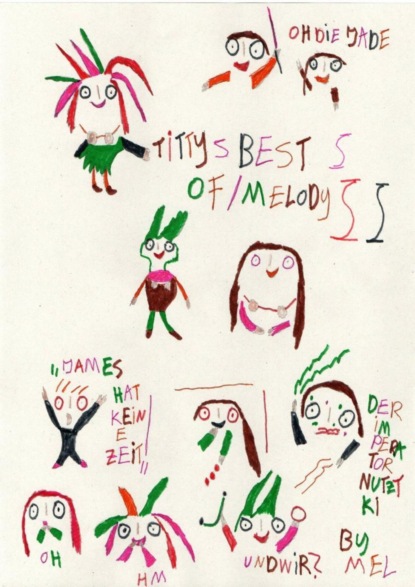 OH DIE JADE
TITTYS BEST
OF/MELODY
"JAMES
HAT
KEIN
E
ZEIT"
DER
IM
PERA
TOR
NUTZT
KI
OH
HM
UND WIR?
BY
MEL